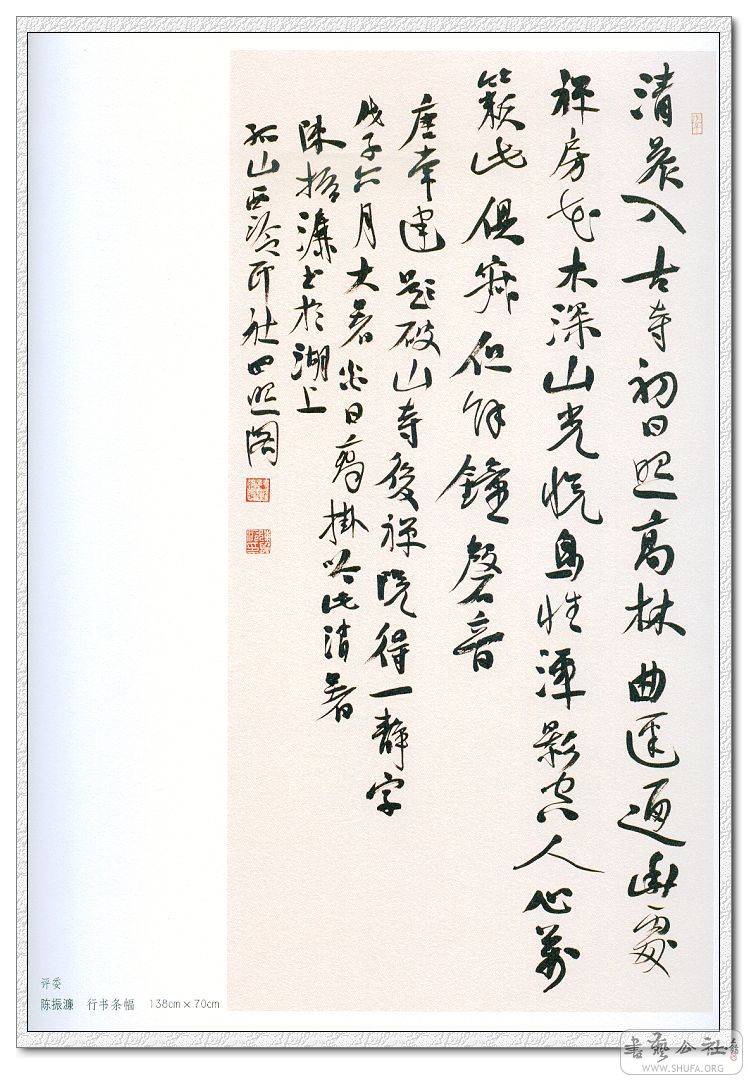 清晨入古寺初日照高林曲迳通幽處
禅房花木深山光悦鳥性潭影空人心萬
籁此俱寂但餘鐘磬音
唐常建题破山寺後禅院得一静字
戊子六月大暑炎日高掛以此消暑
陈振濂书於湖上
孤山西泠印社四照阁
评委
陈振濂 行书条幅 138cm×70cm
書藝公社
WWW.SHUFA.ORG